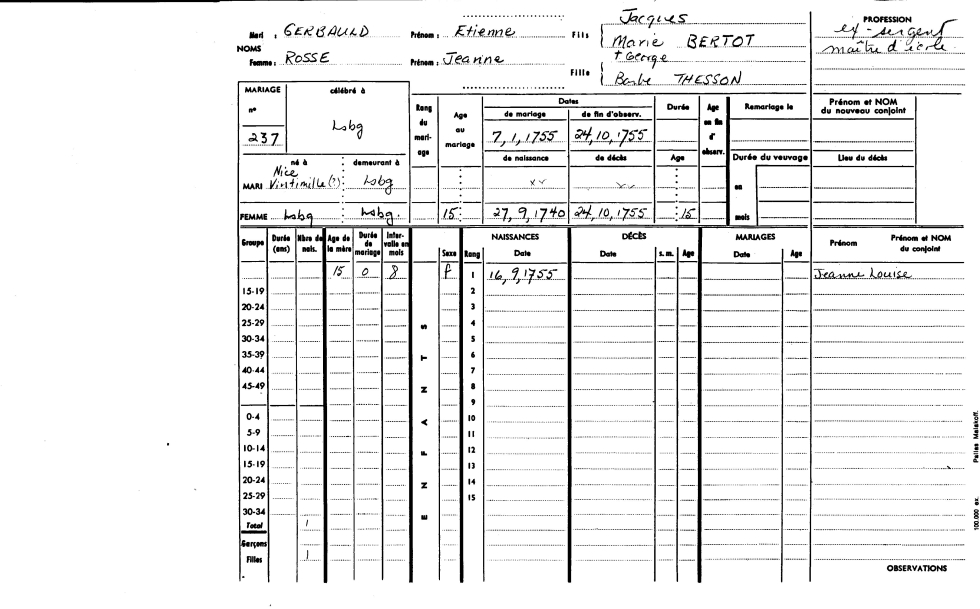 Mari : GERBAULD Prénom : Etienne Fils { Jacques
Marie BERTOT
NOMS
Femme : ROSSE Prénom : Jeanne Fille { + George
Barbe THESSON
PROFESSION
ex-sergent
maître d'école
MARIAGE célébré à
n° 237 Lsbg
Rang du mariage
Age au mariage
Dates
de mariage de fin d'observ.
7, 1, 1755 24, 10, 1755
de naissance de décès
Durée
Age
Age en fin d'observ.
Remariage le
Prénom et NOM du nouveau conjoint
Durée du veuvage
en
mois
Lieu du décès
né à demeurant à
Nice
MARI Vintimille (?) : Lsbg
FEMME Lsbg Lsbg. 15 27, 9, 1740 24, 10, 1755 15
Groupe Durée (ans) Nbre de nais. Age de la mère Durée de mariage Intervalle en mois Sexe Rang NAISSANCES Date DÉCÈS Date s. m. Age MARIAGES Date Age Prénom Prénom et NOM du conjoint
15 0 8 f 1 16, 9, 1755 Jeanne Louise
15-19 2
20-24 3
25-29 4
30-34 5
35-39 6
40-44 7
45-49 8
9
0-4 10
5-9 11
10-14 12
15-19 13
20-24 14
25-29 15
30-34
Total 1
Garçons
Filles 1
ENFANTS
OBSERVATIONS
100.000 ex. Malakoff.